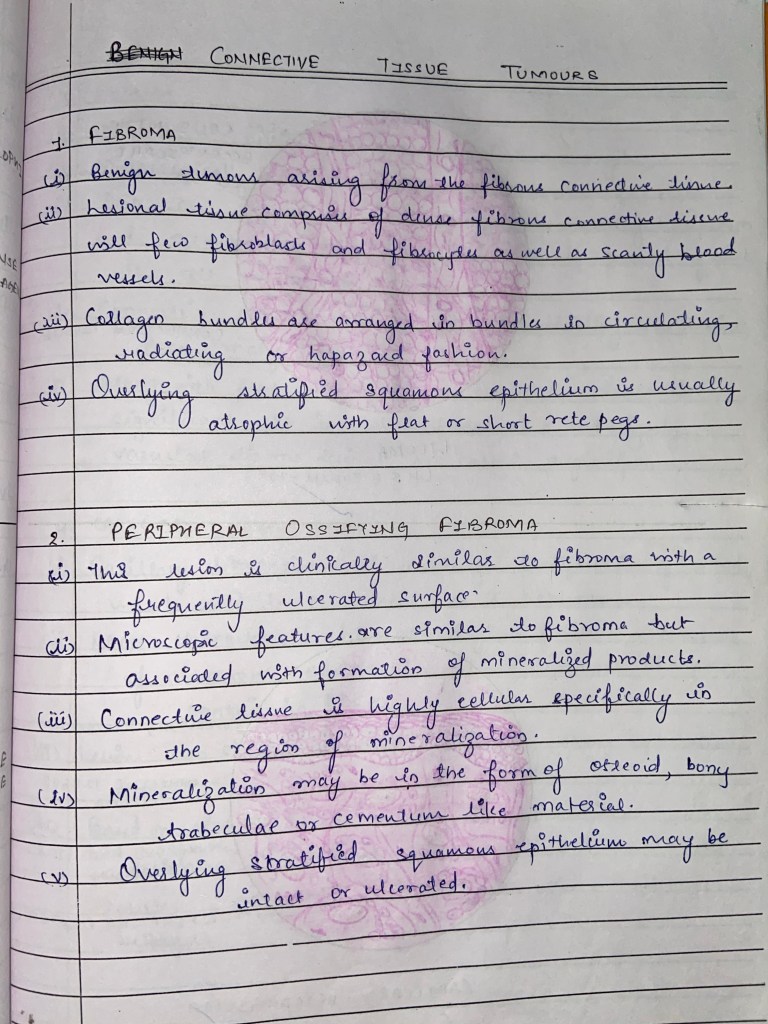 BENIGN CONNECTIVE TISSUE TUMOURS
1. FIBROMA
(i) Benign tumours arising from the fibrous connective tissue.
(ii) Lesional tissue comprises of dense fibrous connective tissue
will few fibroblasts and fibrocytes as well as scanty blood
vessels.
(iii) Collagen bundles are arranged in bundles in circulating,
radiating or hapazard fashion.
(iv) Overlying stratified squamous epithelium is usually
atrophic with flat or short rete pegs.
2. PERIPHERAL OSSIFYING FIBROMA
(i) This lesion is clinically similar to fibroma with a
frequently ulcerated surface.
(ii) Microscopic features are similar to fibroma but
associated with formation of mineralized products.
(iii) Connective tissue is highly cellular specifically in
the region of mineralization.
(iv) Mineralization may be in the form of osteoid, bony
trabeculae or cementum like material.
(v) Overlying stratified squamous epithelium may be
intact or ulcerated.